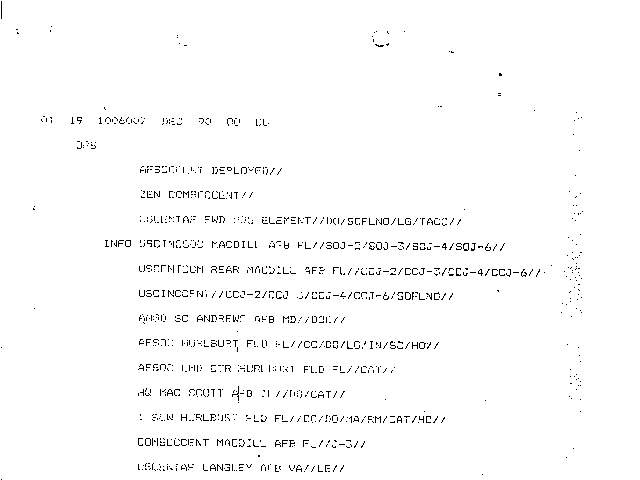 01 19 100600Z DEC 90 OO DD
OPS
AFSOCCENT DEPLOYED//
ZEN COMSOCCENT//
FWD ELEMENT//DO/SOFLNO/LG/TACC//
INFO USCINCSOC MACDILL AFB FL//SOJ-2/SOJ-3/SOJ-4/SOJ-6//
USCENTCOM REAR MACDILL AFB FL//CCJ-2/CCJ-3/CCJ-4/CCJ-6//
USCINCCENT//CCJ-2/CCJ-3/CCJ-4/CCJ-6/SOFLNO//
SC ANDREWS AFB MD//DOC//
AFSOC HURLBURT FLD FL//CC/DO/LG/IN/SC/HO//
AFSOC CMD CTR HURLBURT FLD FL//CAT//
HQ MAC SCOTT AFB IL//DO/CAT//
1 SOW HURLBURT FLD FL//CC/DO/MA/RM/CAT/HO//
COMSOCCENT MACDILL AFB FL//J-3//
USCENTAF LANGLEY AFB VA//LE//